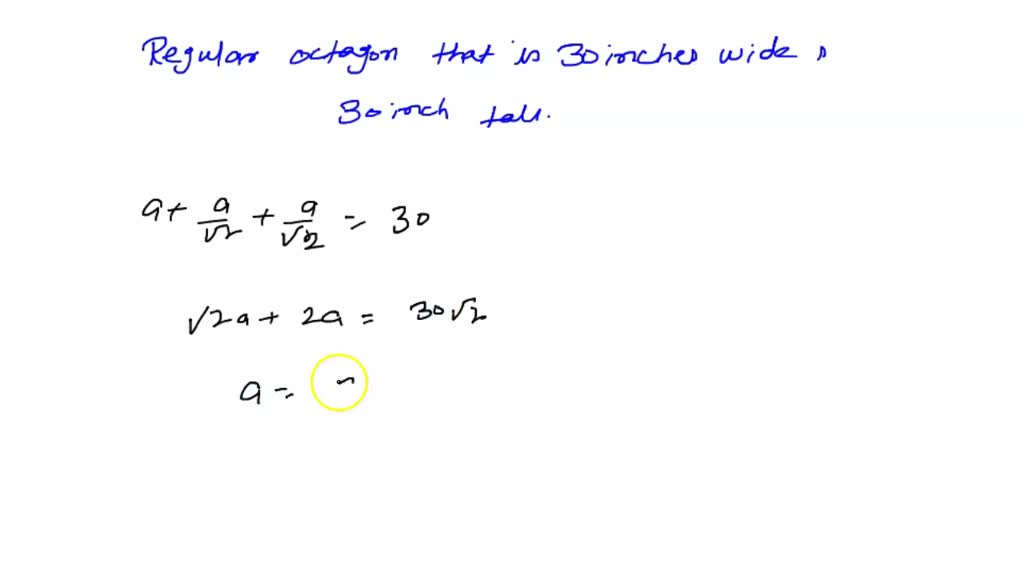 Regular octagon that is 30 inches wide &
30 inch tall.
a + a/√2 + a/√2 = 30
√2a + 2a = 30√2
a =